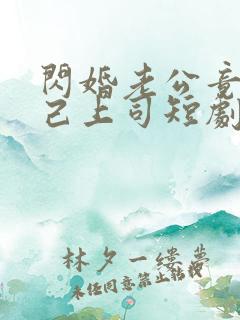 閃婚老公竟
己上司短劇
林夕一縷夢
未任同意禁止転投